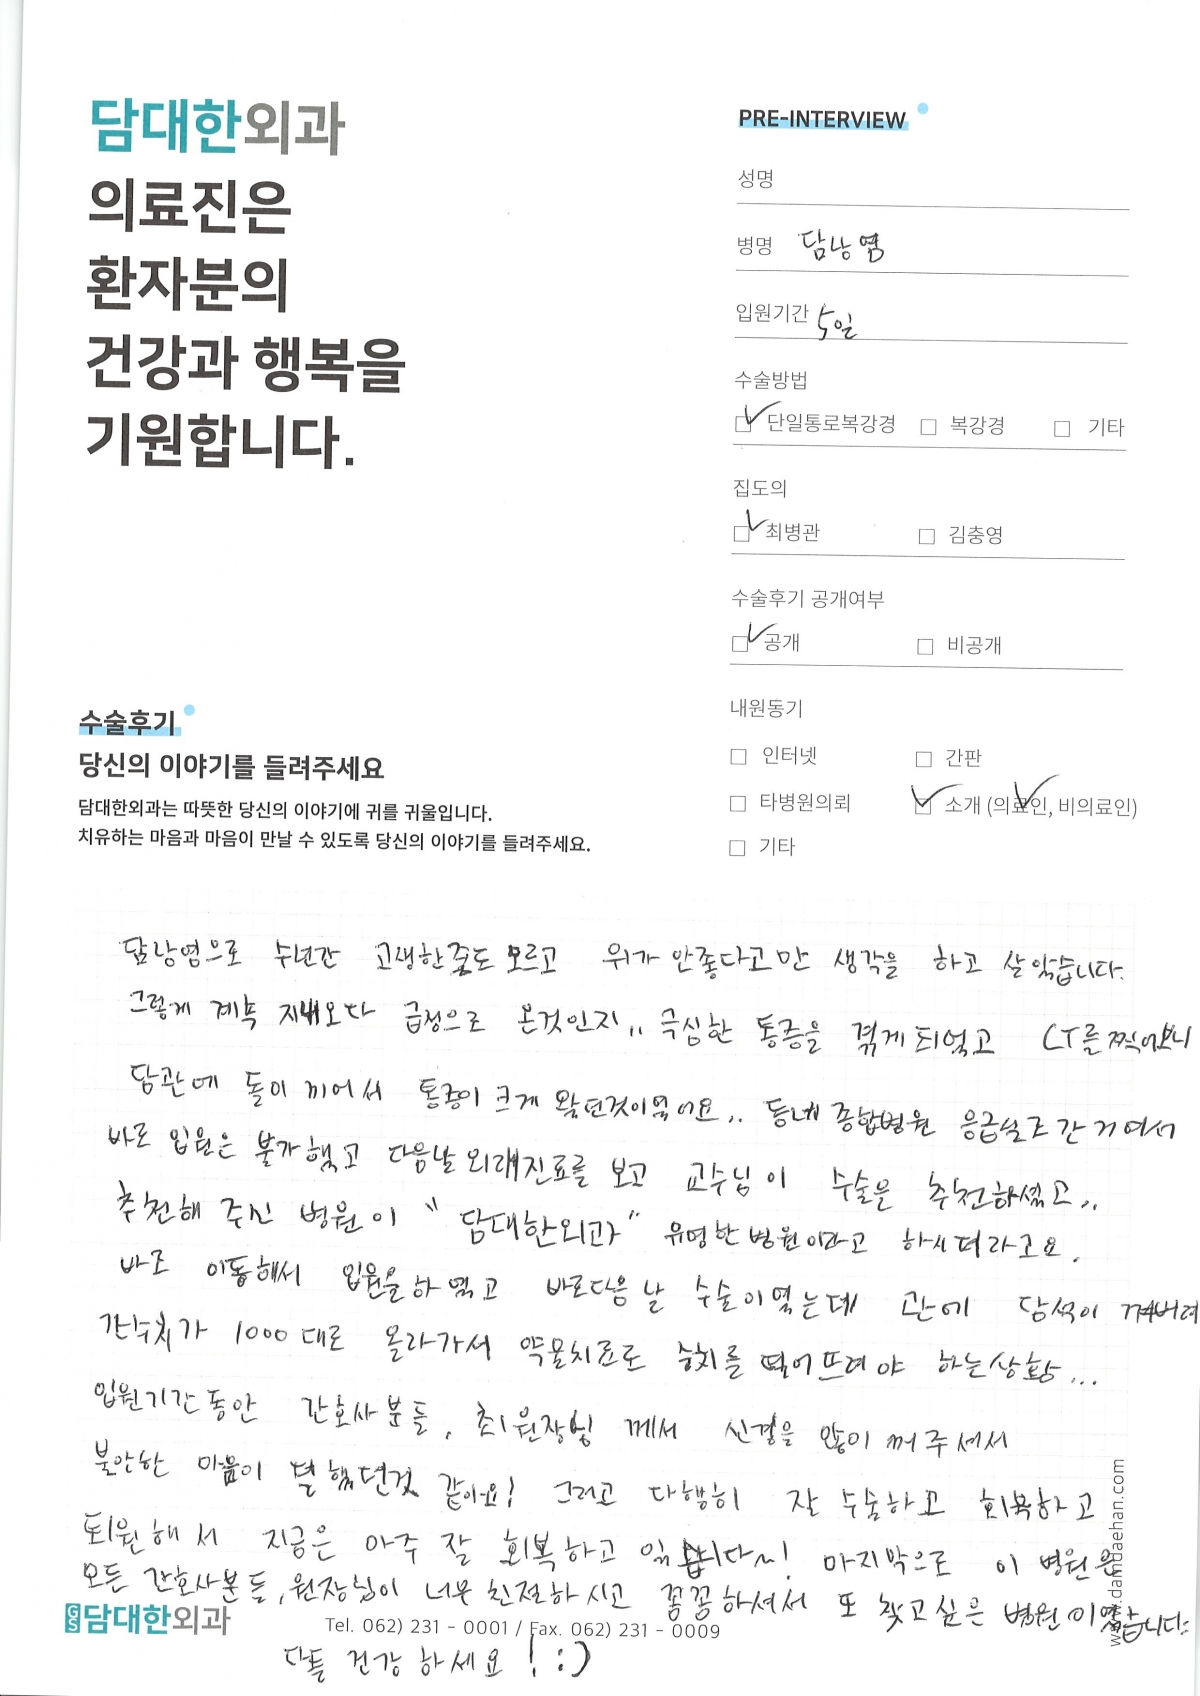 담대한외과
의료진은
환자분의
건강과 행복을
기원합니다.
PRE-INTERVIEW
성명
병명 담낭염
입원기간 5일
수술방법
단일통로복강경 복강경 기타
집도의
최병관 김충영
수술후기 공개여부
공개 비공개
내원동기
인터넷 간판
타병원의뢰 소개 (의료인, 비의료인)
기타
수술후기
당신의 이야기를 들려주세요
담대한외과는 따뜻한 당신의 이야기에 귀를 귀울입니다.
치유하는 마음과 마음이 만날 수 있도록 당신의 이야기를 들려주세요.
담낭염으로 수년간 고생한줄도 모르고 위가 안좋다고만 생각을 하고 살았습니다.
그렇게 계속 지내오다 급성으로 온것인지,, 극심한 통증을 겪게되었고 CT를 찍어보니
담관에 돌이 끼어서 통증이 크게 왔던것이었어요,, 동네 종합병원 응급실로 간거여서
바로 입원은 불가했고 다음날 외래진료를 보고 교수님이 수술을 추천하셨고,,
추천해 주신 병원이 "담대한외과" 유명한 병원이라고 하시더라고요.
바로 이동해서 입원을 하였고 바로다음날 수술이였는데 관에 담석이 껴버려
간수치가 1000대로 올라가서 약물치료로 수치를 떨어뜨려야 하는상황...
입원기간동안 간호사분들, 최원장님 께서 신경을 많이 써주셔서
불안한 마음이 덜했던것 같아요! 그리고 다행히 잘 수술하고 회복하고
퇴원해서 지금은 아주 잘 회복하고 있습니다~! 마지막으로 이 병원은
모든 간호사분들, 원장님이 너무 친절하시고 꼼꼼하셔서 또 찾고싶은 병원이였습니다.
다들 건강 하세요! :)
GS 담대한외과
Tel. 062) 231 - 0001 / Fax. 062) 231 - 0009
www.damdaehan.com